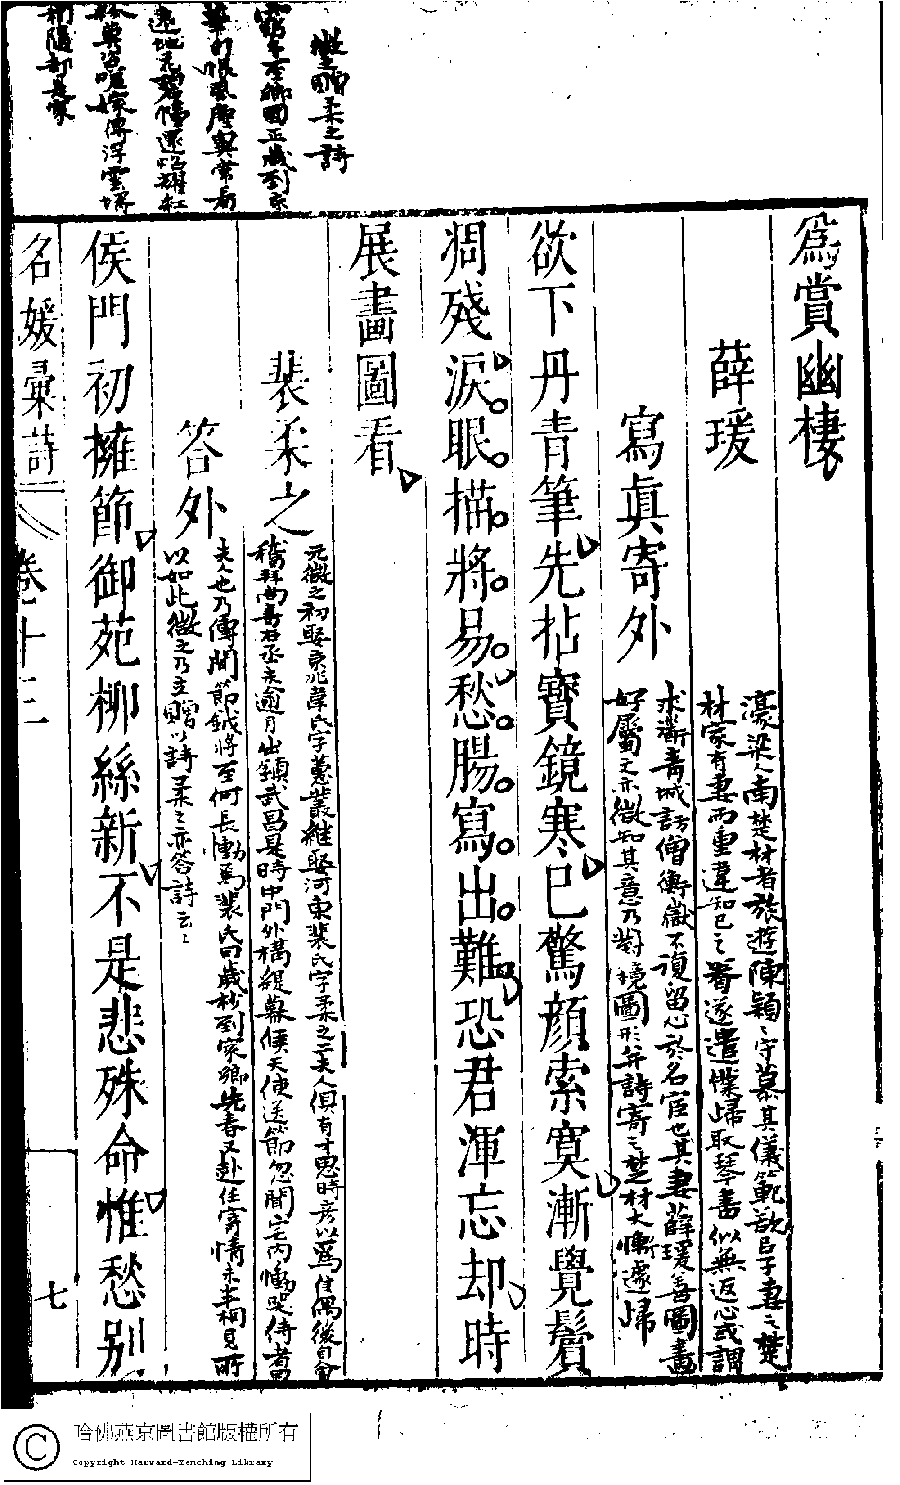 微之贈柔之詩
窮冬至鄉國正歲到京
華自恨風塵眼常看
遠地花碧幢還照耀紅
粉莫咨嗟嫁得浮雲壻
相隨即是家
為賞幽棲
薛瑗
寫眞寄外
濠梁人南楚材者旅遊陳穎穎守慕其儀範欲以子妻之楚
材家有妻而重違知己之眷遂遣僕歸取琴書似無返心或謂
求道青城訪僧衡嶽不復留心於名宦也其妻薛瑗善圖畫
好屬文亦微知其意乃對境圖形并詩寄之楚材大慚遽歸
欲下丹青筆先拈寶鏡寒已驚顔索寞漸覺鬢
凋殘淚眼描將易愁腸寫出難恐君渾忘却時
展畫圖看
裴柔之
元微之初娶京兆韋氏字蕙叢繼娶河東裴氏字柔之二夫人俱有才思時彥以爲佳偶後自會
稽拜尚書右丞未逾月出鎮武昌是時中門外構緹幕候天使送節忽聞宅内慟哭侍者曰
夫人也乃傳問節鉞將至何長慟焉裴氏曰歲杪到家鄉先春又赴任寄情未半相見所
以如此微之乃立贈以詩柔之亦答詩云云
答外
侯門初擁節御苑柳絲新不是悲殊命惟愁别
名媛彙詩
卷十二
七
哈佛燕京圖書館版權所有
Copyright Harvard-Yenching Library